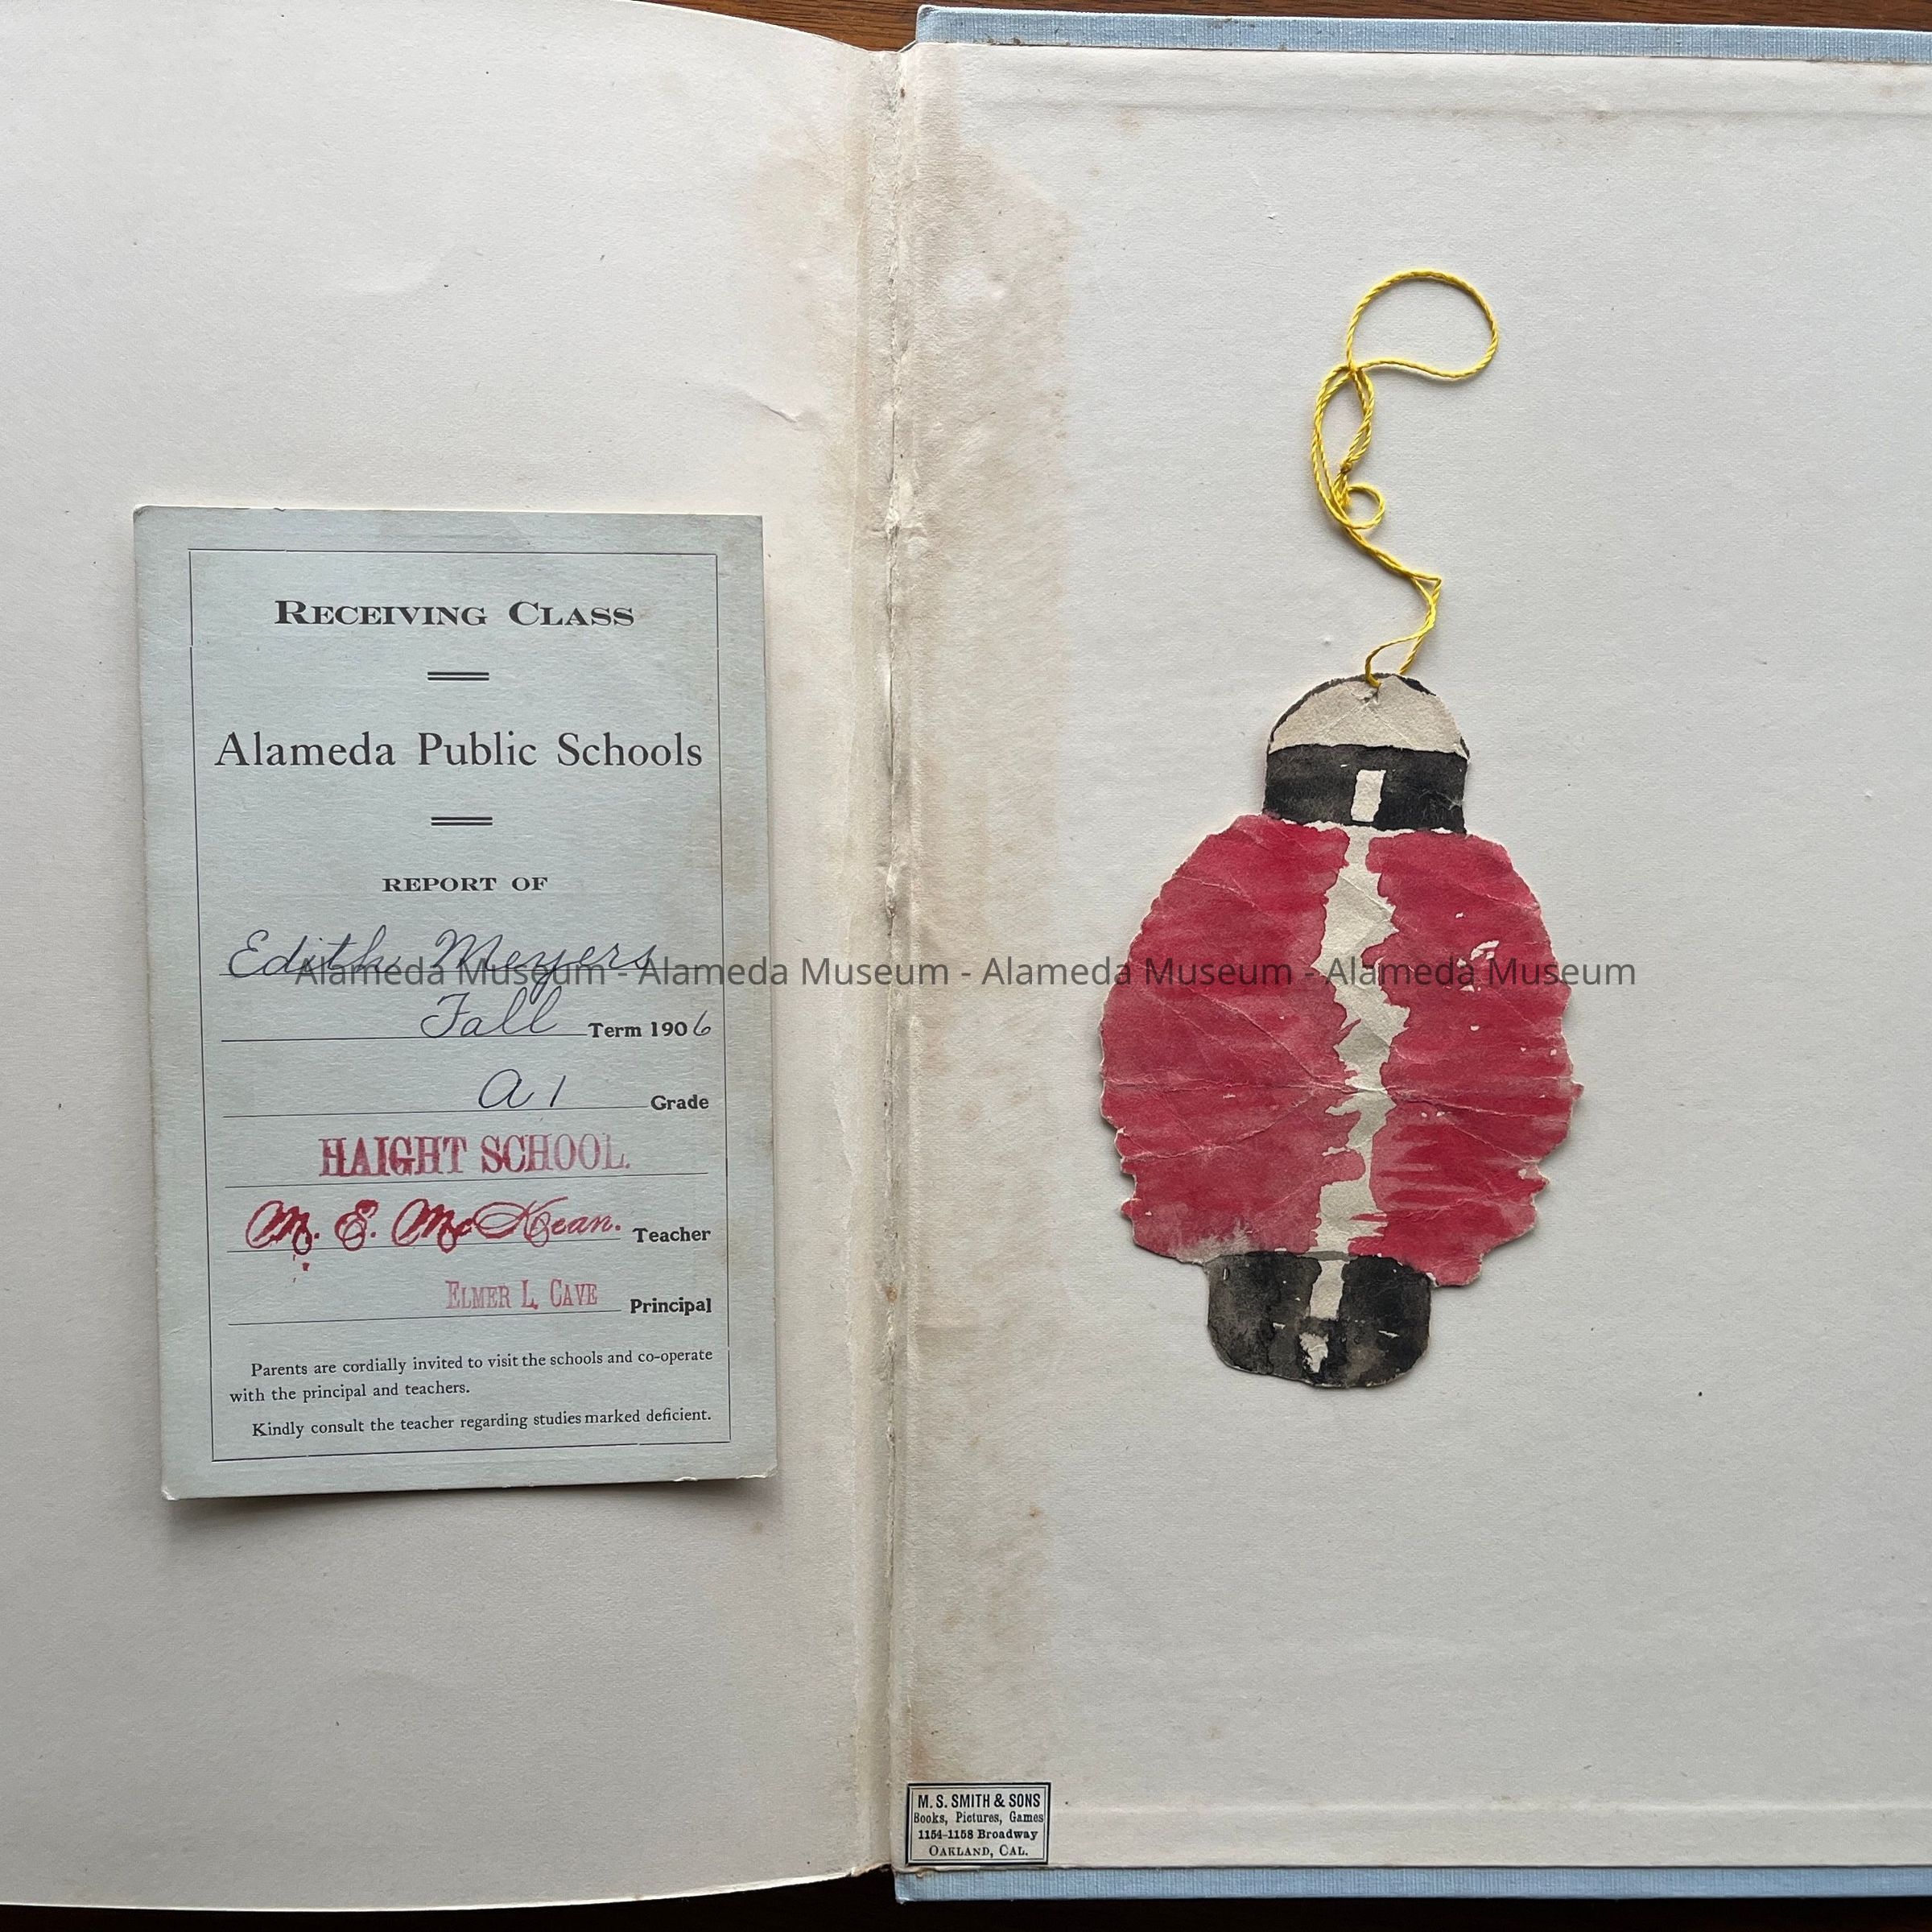 RECEIVING CLASS
Alameda Public Schools
REPORT OF
Edith Meyers
Alameda Museum - Alameda Museum - Alameda Museum - Alameda Museum
Fall Term 1906
a 1 Grade
HAIGHT SCHOOL.
M. E. McKean. Teacher
ELMER L. CAVE Principal
Parents are cordially invited to visit the schools and co-operate
with the principal and teachers.
Kindly consult the teacher regarding studies marked deficient.
M. S. SMITH & SONS
Books, Pictures, Games
1154-1158 Broadway
OAKLAND, CAL.